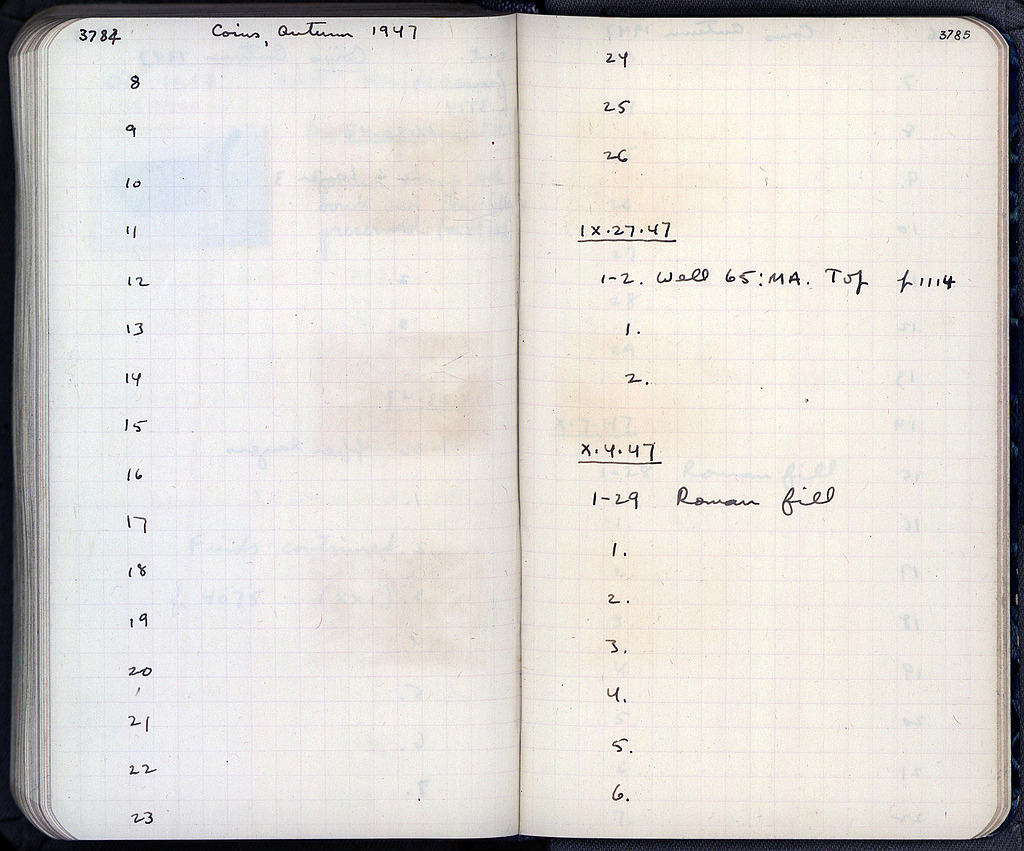 3784 Coins, Autumn 1947
8
9
10
11
12
13
14
15
16
17
18
19
20
21
22
23
3785
24
25
26
IX.27.47
1-2. Well 65:MA. Top p 1114
1.
2.
X.4.47
1-29 Roman fill
1.
2.
3.
4.
5.
6.